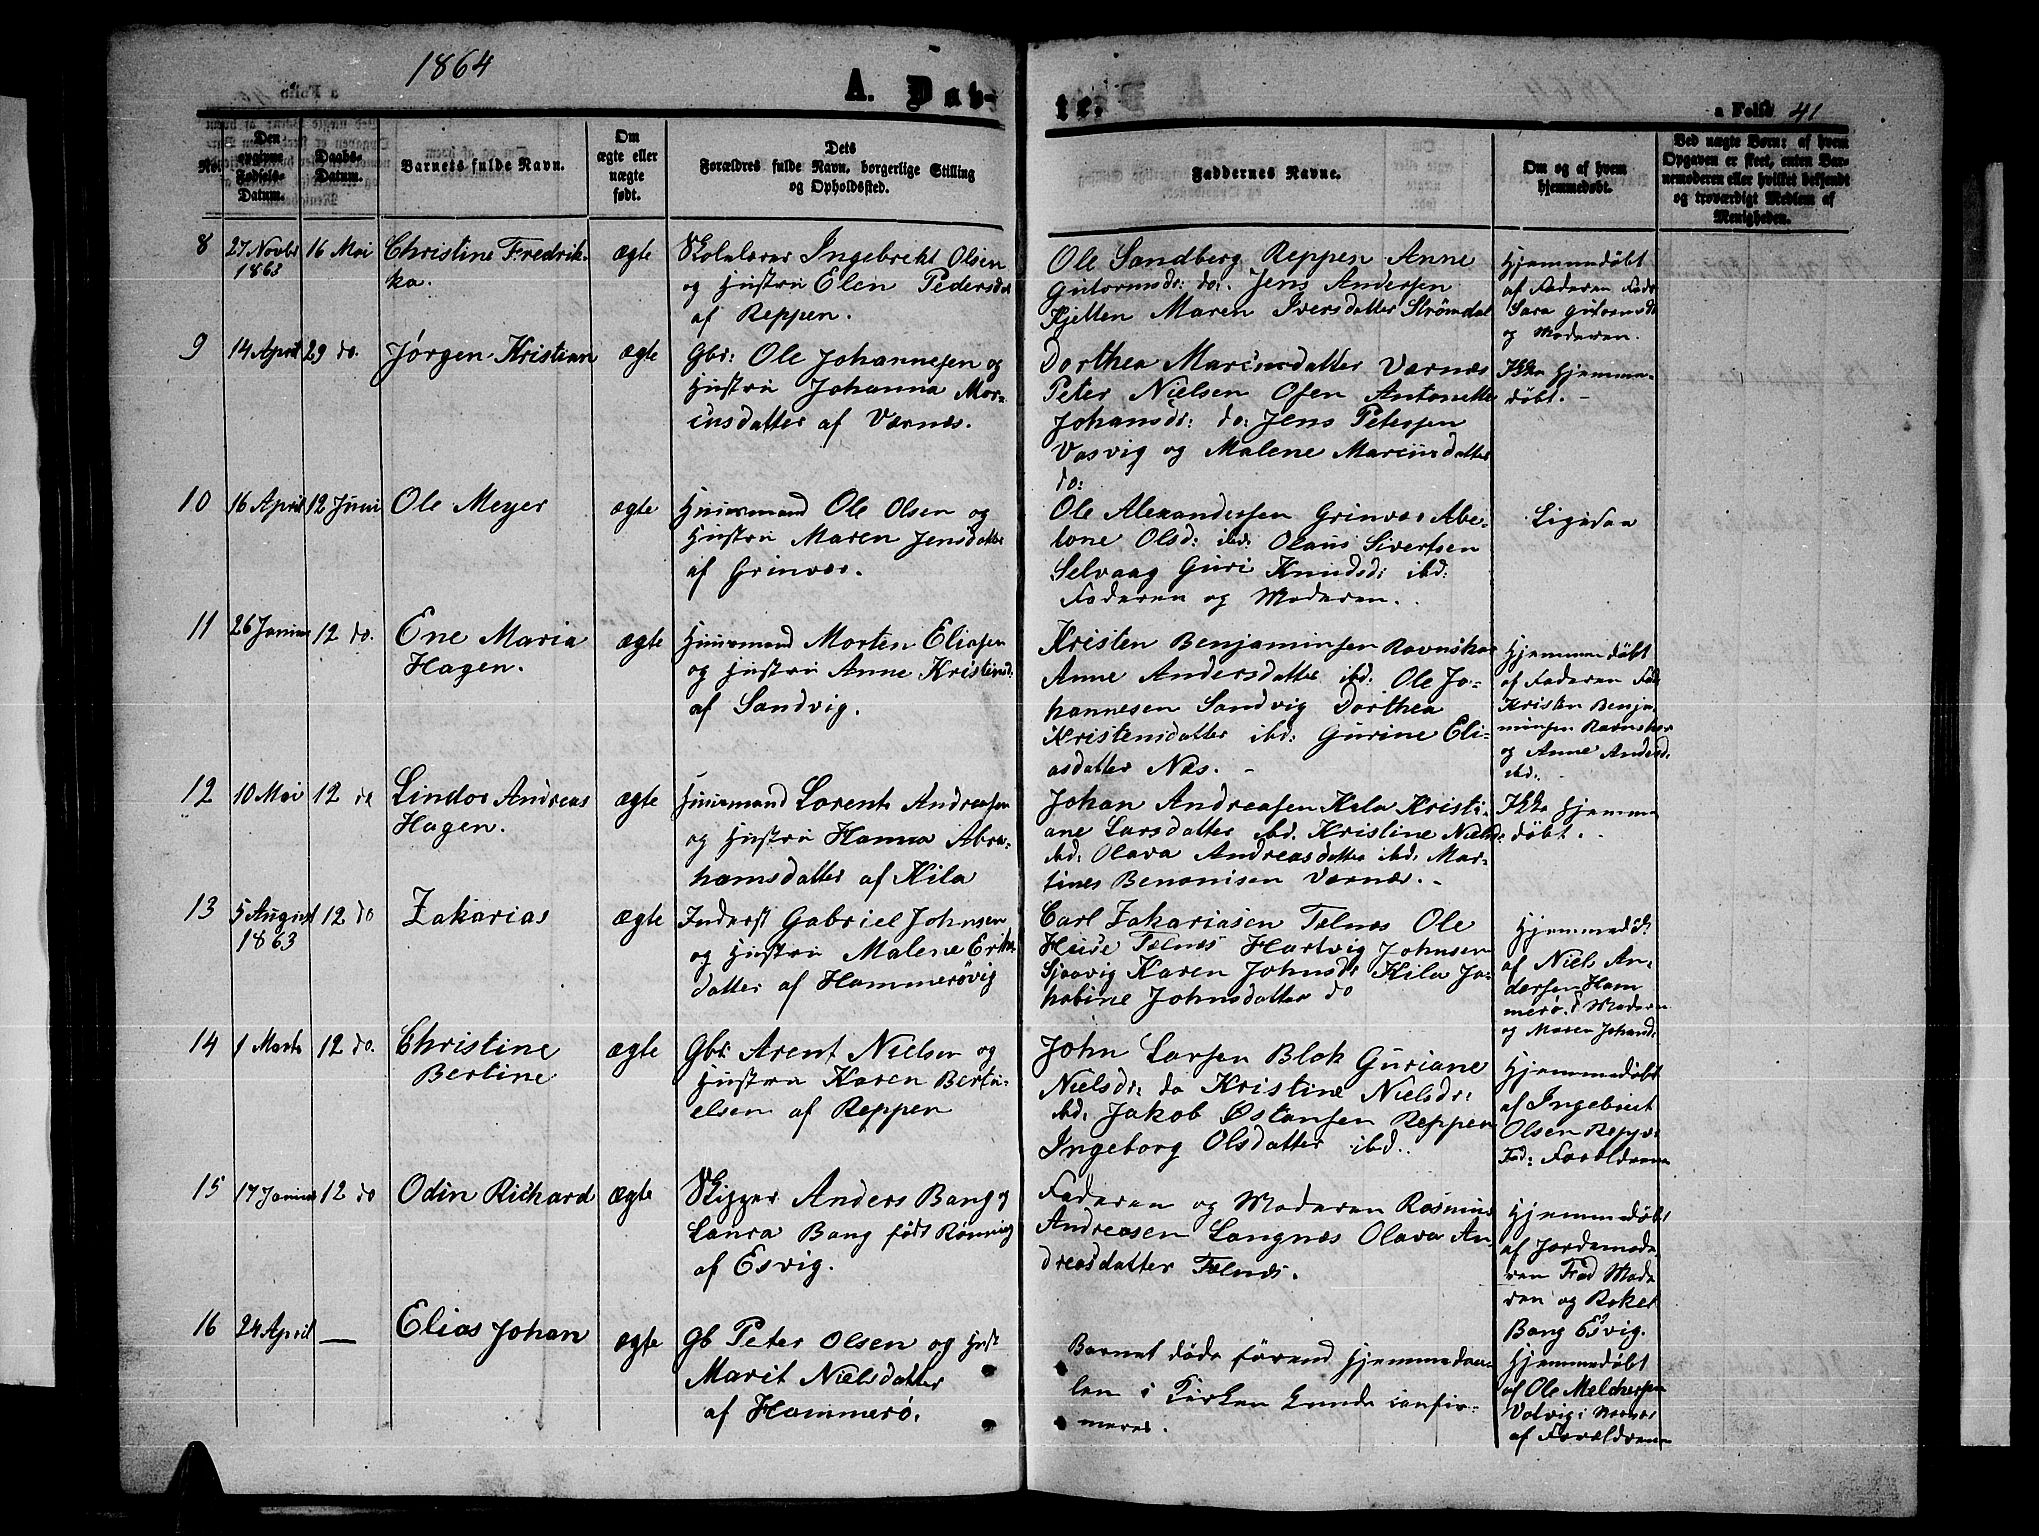 1864
A. Dab-
te.
a Folio 41
No.
Den
opgivne
Fødsels-
Datum.
Daabs-
Datum.
Barnets fulde Navn.
Om
ægte eller
uægte
født.
Dets
Forældres fulde Navn, borgerlige Stilling
og Opholdssted.
Faddernes Navne.
Om og af hvem
hjemmedøbt.
Ved uægte Børn: af hvem
Opgaven er skeet, enten Bar-
nemoderen eller hvilket bekjendt
og troværdigt Medlem af
Menigheden.
8 27 Novbr 1863 16 Mai Christine Fredrik-
ka. ægte
Skolelærer Ingebrekt Olsen
og Hustru Elen Pedersdr
af Reppen.
Ole Sandberg Reppen Anne
Gutormsdr: do: Jens Andersen
Kjelten Maren Iversdatter Strømdal
Hjemmedøbt
af Faderen Fadr
Sara Gutormsdr
og Moderen.
9 14 April 29 do. Jørgen Kristian ægte
Gbr: Ole Johannesen og
Hustru Johanna Mar-
cusdatter af Værnæs.
Dorthea Marcusdatter Værnæs
Peter Nielsen Osen Antonette
Johansdr: do: Jens Petersen
Vasvig og Malene Marcusdatter
do:
Ikke hjemme-
døbt. -
10 16 April 12 Juni Ole Meyer ægte
Huusmand Ole Olsen og
Hustru Maren Jensdatter
af Grinvær.
Ole Alexandersen Grinvær Abe-
lone Olsd: ibd: Olaus Sivertsen
Selvaag Guri Knudsd: ibd:
Faderen og Moderen.
Ligedan
11 26 Januar 12 do. Ene Maria
Hagen. ægte
Huusmand Morten Eliasen
og Hustru Anne Kristensd:
af Sandvig.
Kristen Benjaminsen Ravnskar
Anne Andersdatter ibd: Ole Jo-
hannesen Sandvig Dorthea
Kristensdatter ibd: Gurine Eli-
asdatter Næs. -
Hjemmedøbt
af Faderen Fadr
Kristen Benja-
minsen Ravnskar
og Anne Andersd:
ibd:
12 10 Mai 12 do Lindor Andreas
Hagen. ægte
Huusmand Lorents Andreasen
og Hustru Hanna Abra-
hamsdatter af Kila
Johan Andreasen Kila Kristi-
ane Larsdatter ibd. Kristine Nielsdr
ibd: Olava Andreasdatter ibd: Mar-
tines Benonisen Værnæs. -
Ikke hjemme
døbt. -
13 5 August 1863 12 do Zakarias ægte
Inderst Gabriel Johnsen
og Hustru Malene Eriks
datter af Hammerøvig
Carl Zakariasen Tælnæs Ole
Heide Tælnæs Hartvig Johnsen
Sjaavig Karen Johnsdr Kila Ja-
kobine Johnsdatter do
Hjemmedbt
af Niels An-
dersen Ham
merø. Moderen
og Maren Johand:
14 1 Marts 12 do. Christine
Bertine ægte
Gbr: Arent Nielsen og
Hustru Karen Berta-
elsen af Reppen
John Larsen Blok Guriane
Nielsdr: do Kristine Nielsdr:
ibd: Jakob Østensen Reppen
Ingeborg Olsdatter ibd.
Hjemmedøbt
af Ingebrict
Olsen Repp:
Fad: Forældrene
15 17 Januar 12 do Odin Richard ægte
Skipper Anders Bang og
Laura Bang født Rønning
af Esvig.
Faderen og Moderen Rasmus
Andreasen Langnæs Olava An-
dreasdatter Tælnæs.
Hjemmedøbt
af Jordemode-
ren Fad Mode
ren og Roket
Bang Esvig.
16 24 April — Elias Johan ægte
Gb Peter Olsen og Hust
Marit Nielsdatter
af Hammerø.
Barnet døde førend hjemmedaa-
ben i Kirken kunde confir-
meres.
Hjemmedøbt
af Ole Melchersen
Valvig i Nærvær
af Forældrene